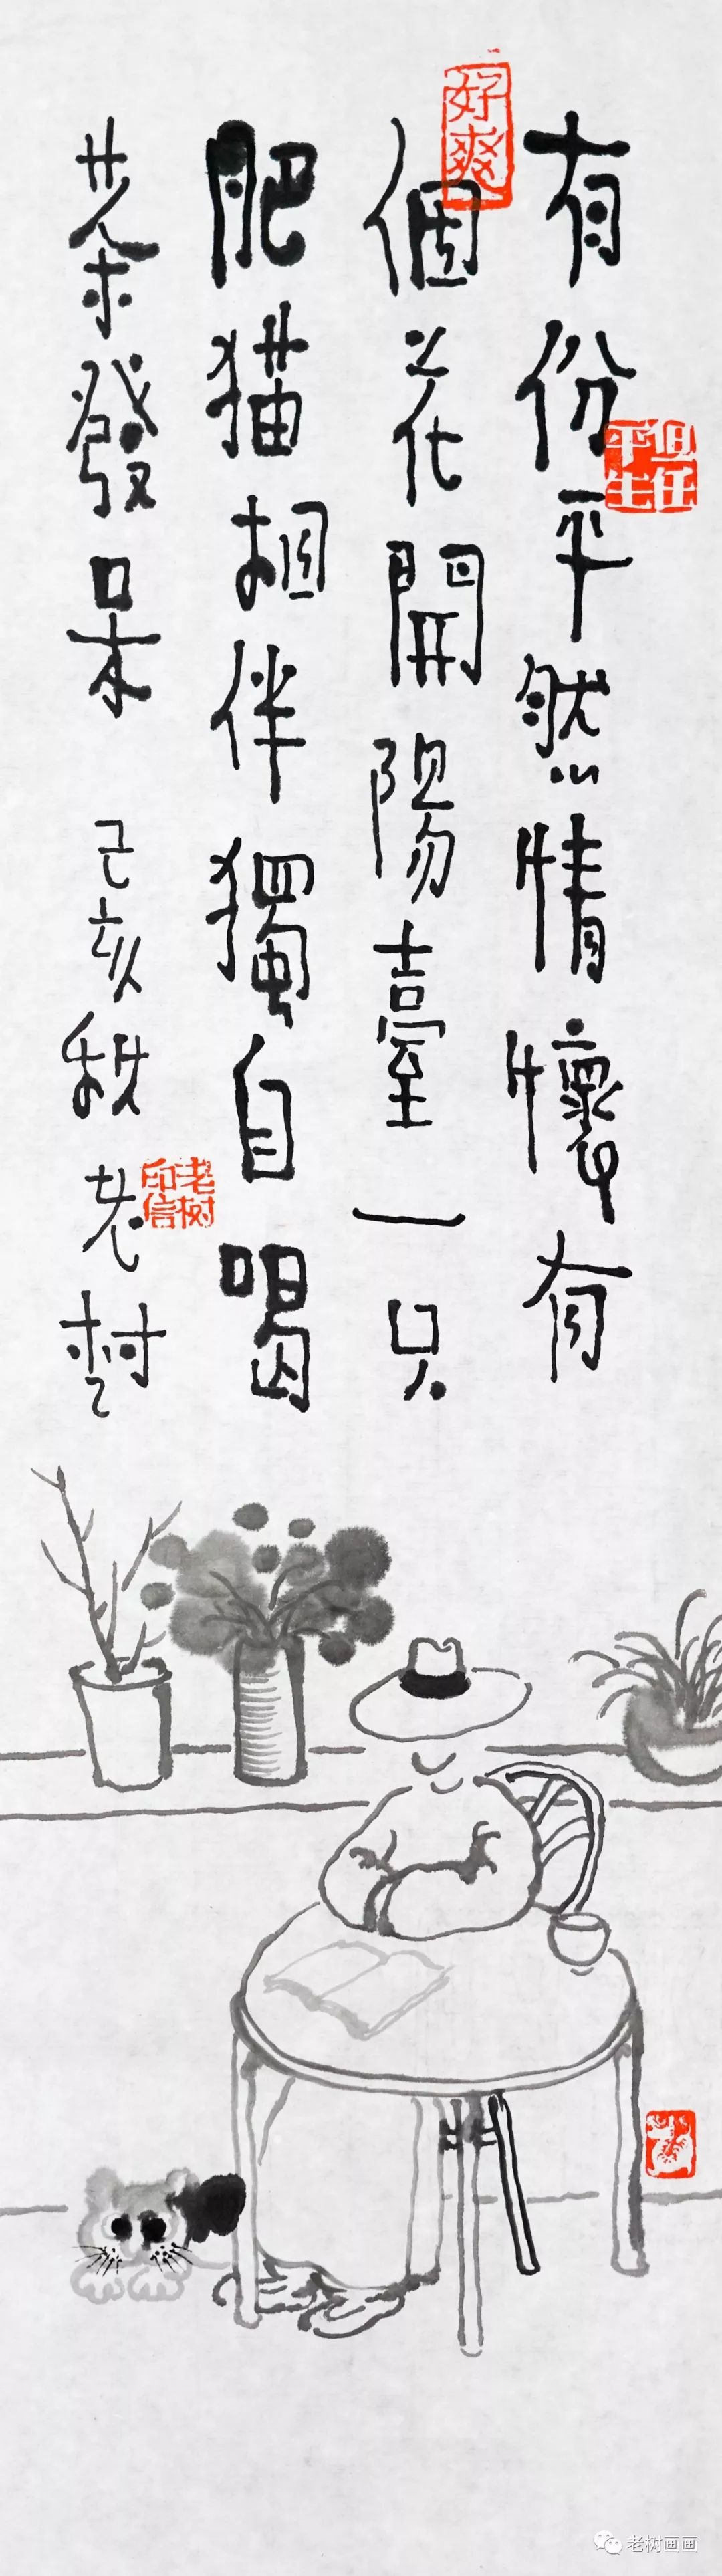 有份平然情懷有
個花開陽臺一只
肥猫相伴獨自喝
茶發呆 己亥秋老樹
好爽
老树印信
老树画画